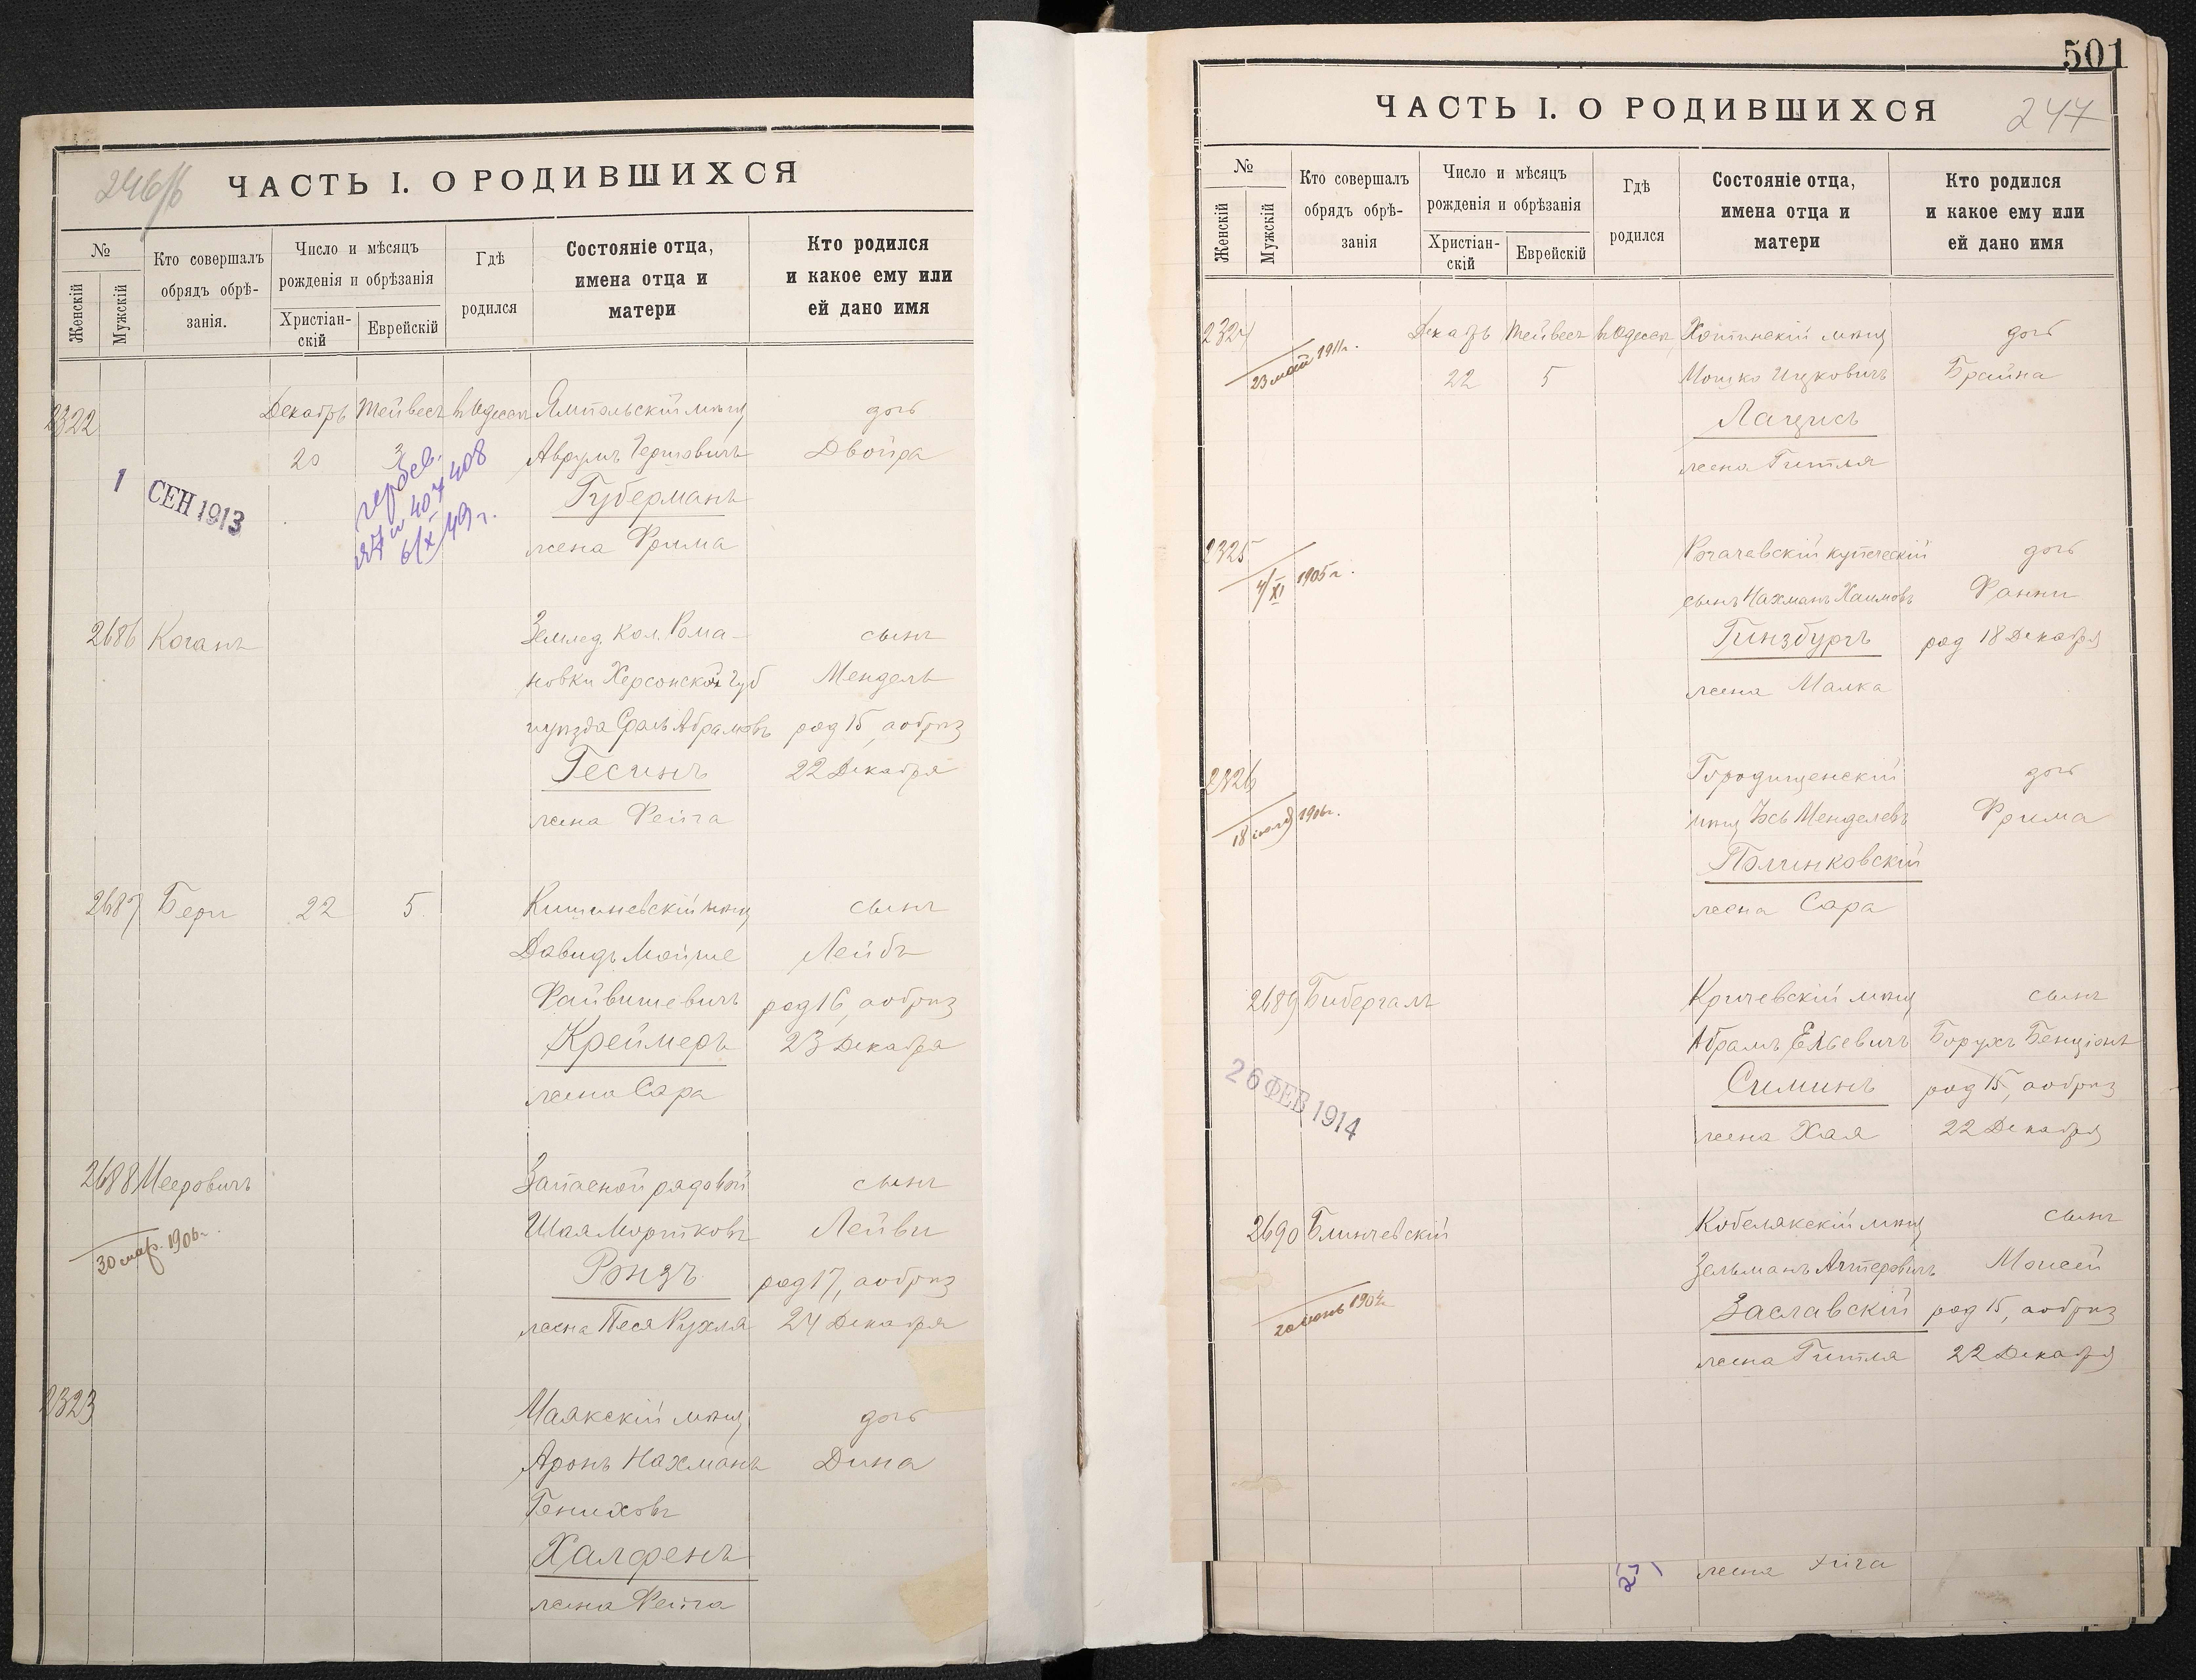 246/б
ЧАСТЬ I. О РОДИВШИХСЯ
№
Женскій
Мужскій
Кто совершалъ
обрядъ обрѣ-
занія.
Число и мѣсяцъ
рожденія и обрѣзанія
Христіан-
скій
Еврейскій
Гдѣ
родился
Состояніе отца,
имена отца и
матери
Кто родился
и какое ему или
ей дано имя
2322 Декабрь Тейвесъ въ Одессѣ Ямпольскій мѣщ дочь
20 3 Аврумъ Гершовичъ Двойра
1 СЕН 1913
6/X 49 г.
Губерманъ
жена Фрима
2686 Коганъ Землед. кол. Рома- сынъ
новки Херсонской губ Мендель
и уѣзда Сроль Абрамовъ род 15, а обрѣз
Гесинъ 22 Декабря
жена Фейга
2687 Бери 22 5 Кишиневскій мѣщ сынъ
Давидъ Мойше Лейбъ
Файвишевичъ род 16, а обрѣз
Креймеръ 23 Декабря
жена Сара
2688 Мееровичъ Запасной рядовой сынъ
Шая Мортковъ Лейви
30 мар. 1906 г.
Рензъ род 17, а обрѣз
жена Песя Рухля 24 Декабря
2323 Маякскій мѣщ дочь
Аронъ Нахманъ Дина
Гениховъ
Халфенъ
жена Фейга
501
247
ЧАСТЬ I. О РОДИВШИХСЯ
№
Женскій
Мужскій
Кто совершалъ
обрядъ обрѣ-
занія
Число и мѣсяцъ
рожденія и обрѣзанія
Христіан-
скій
Еврейскій
Гдѣ
родился
Состояніе отца,
имена отца и
матери
Кто родился
и какое ему или
ей дано имя
2324 Декабрь Тейвесъ въ Одессѣ Хотинскій мѣщ дочь
23 май 1911 г.
22 5 Мошко Ицковичъ Брайна
Лацисъ
жена Гитля
2325 Рогачевскій купеческій дочь
4/XI 1905 г.
сынъ Нахманъ Хаимовъ Фанни
Гинзбургъ род 18 Декабря
жена Малка
2326 Городищенскій дочь
18 1906 г.
мѣщ Іось Менделевъ Фрима
Полинковскій
жена Сара
2689 Бибергалъ Кричевскій мѣщ сынъ
Абрамъ Ельевичъ Борухъ Бенціонъ
26 ФЕВ 1914
Симинъ род 15, а обрѣз
жена Хая 22 Декабря
2690 Блинчевскій Кобелякскій мѣщ сынъ
Зельманъ Алтеровичъ Моисей
Заславскій род 15, а обрѣз
жена Гитля 22 Декабря
жена